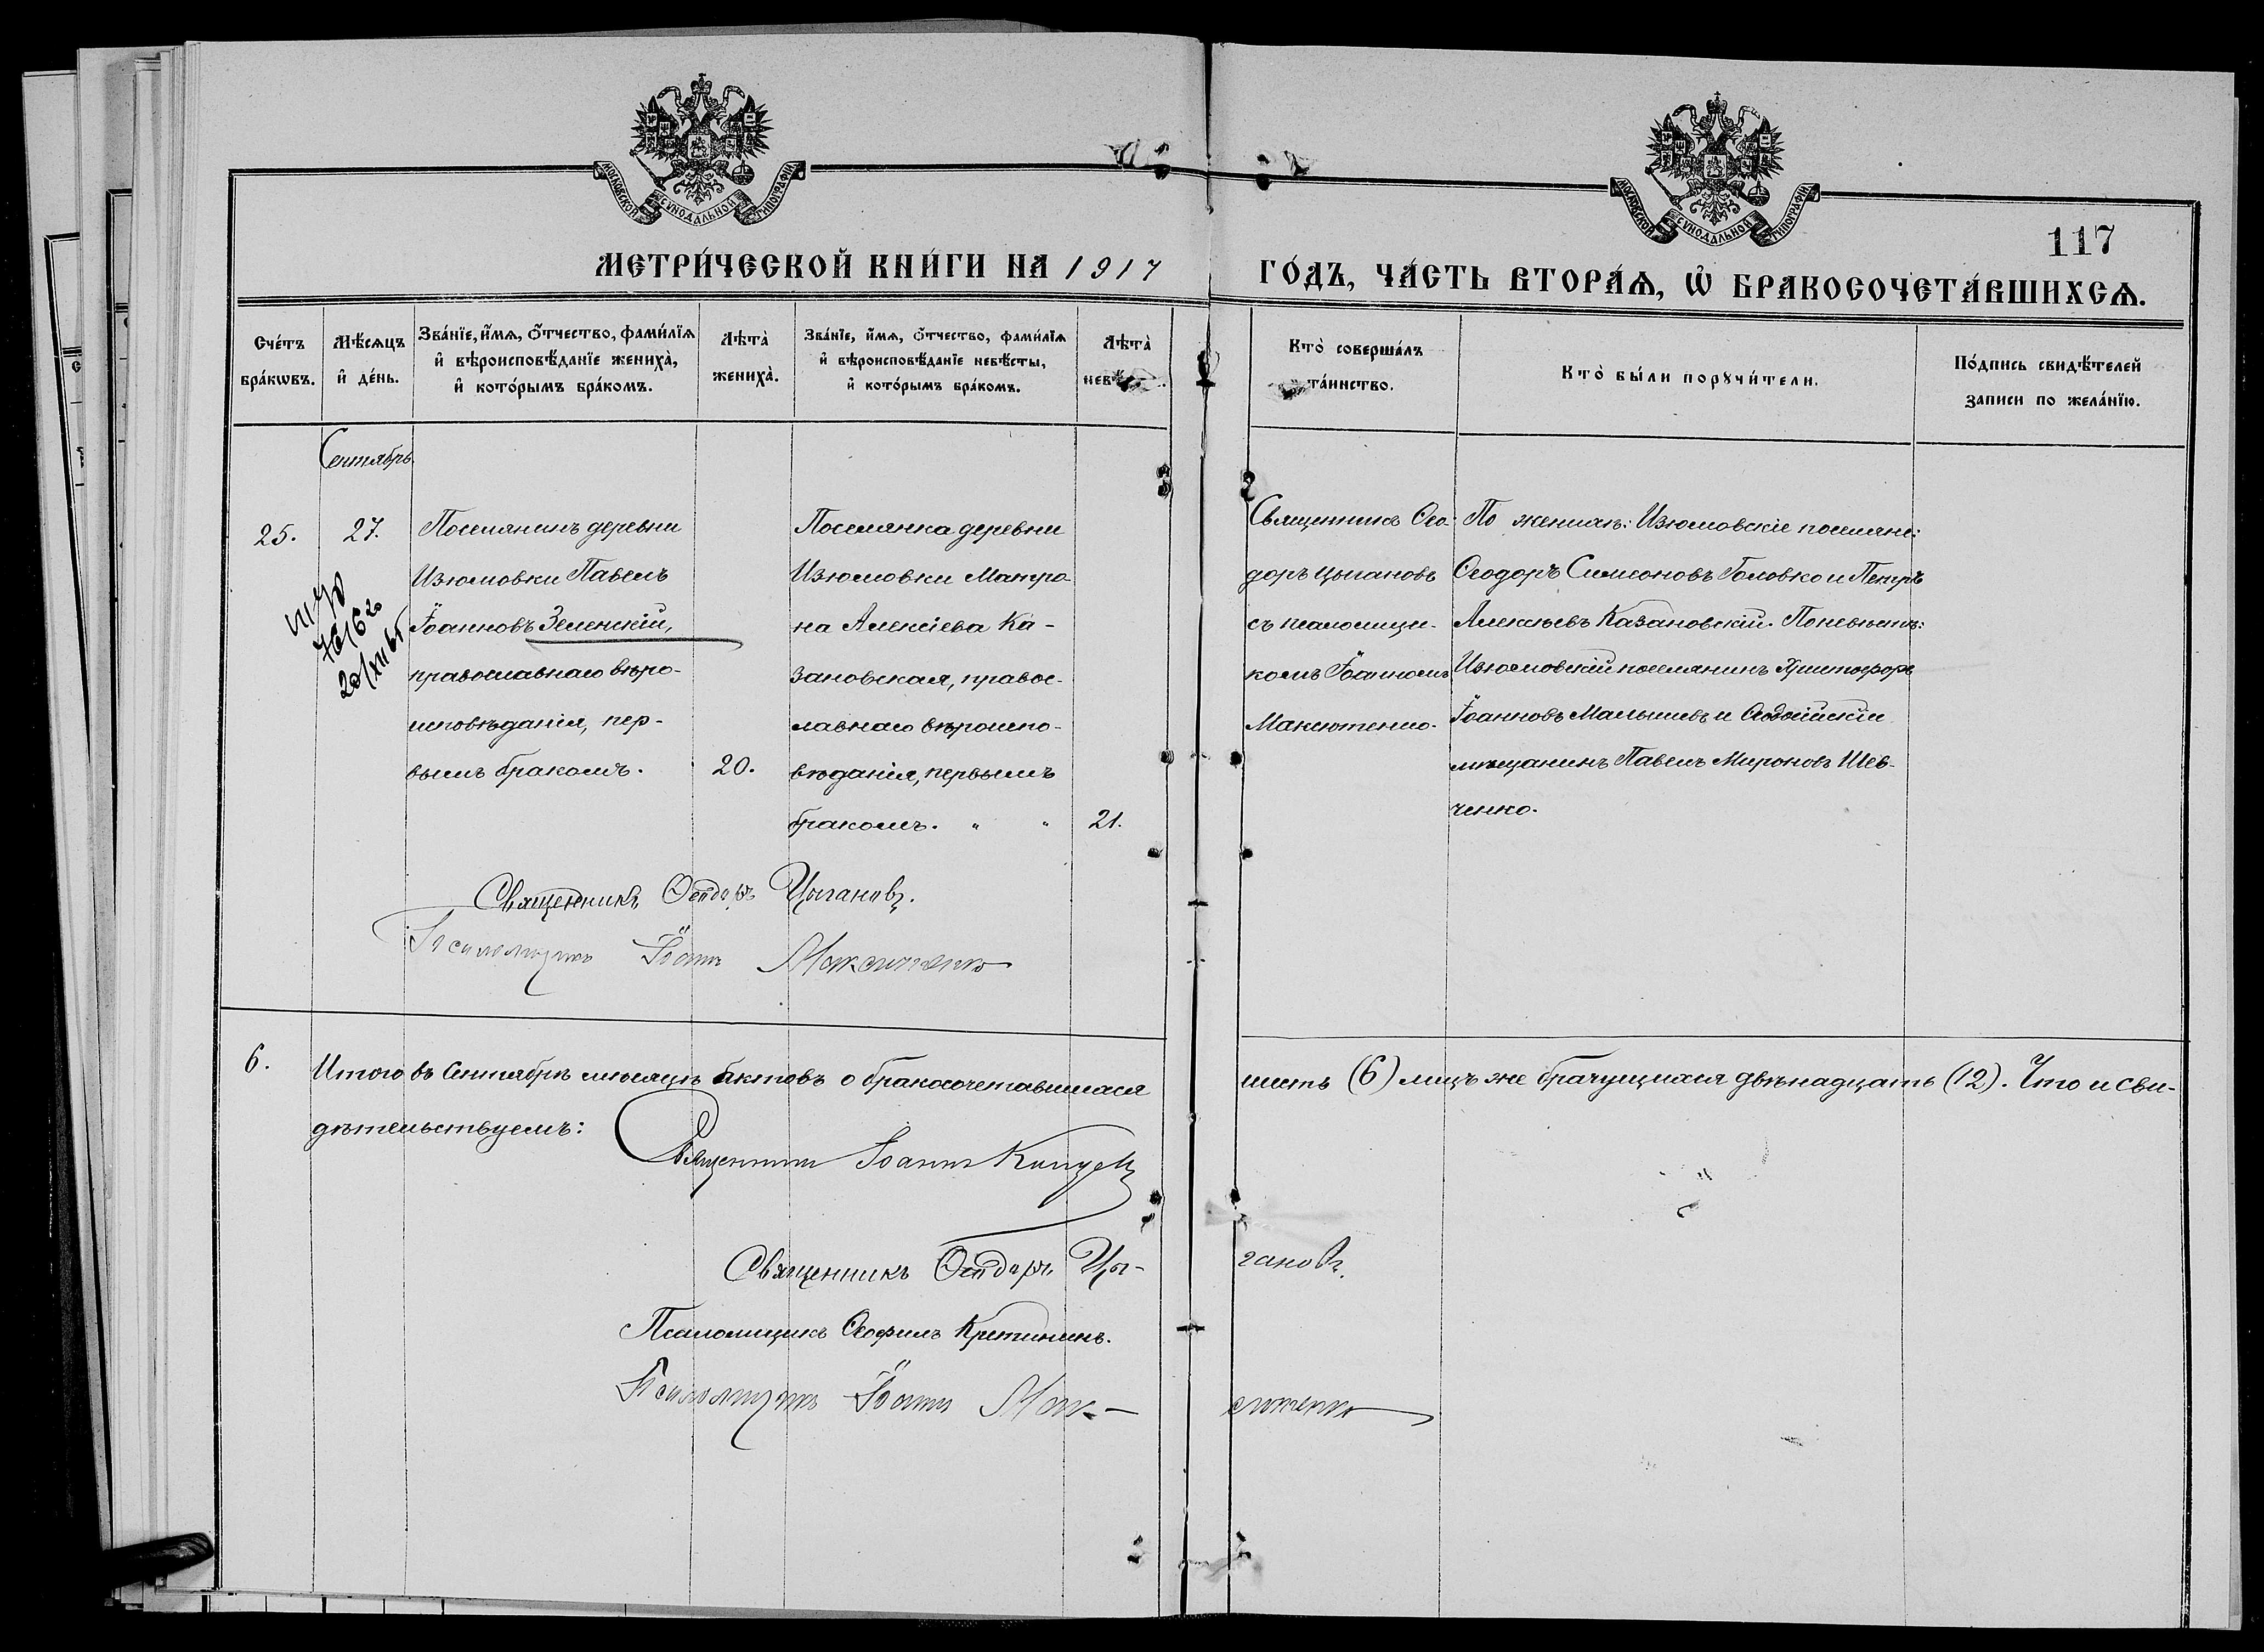 МОСКОВСКОЙ СѴНОДАЛЬНОЙ ТИПОГРАФІИ
МОСКОВСКОЙ СѴНОДАЛЬНОЙ ТИПОГРАФІИ
117
МЕТРИ́ЧЕСКОЙ КНИ́ГИ НА 1917
ГО́ДЪ, ЧА́СТЬ ВТОРА́Ѧ, Ѡ БРАКОСОЧЕТА́ВШИХСѦ.
Сче́тъ бра́кѡвъ.
Мѣ́сѧцъ и де́нь.
Зва́нїе, и́мѧ, о́тчество, фами́лїѧ
и вѣроисповѣ́данїе жениха̀,
и кото́рымъ бра́комъ.
Лѣ́та̀
жениха̀.
Зва́нїе, и́мѧ, о́тчество, фами́лїѧ
и вѣроисповѣ́данїе невѣ́сты,
и кото́рымъ бра́комъ.
Лѣ́та̀
невѣ
Кто̀ соверша́лъ
та́инство.
Кто̀ бы́ли порꙋчи́тели.
По́дпись свидѣ́телей
записи по жела́нїю.
Сентябрь.
25.
27.
Поселянинъ деревни
Изюмовки Павелъ
Іоанновъ Зеленскій,
православнаго вѣро-
исповѣданія, пер-
вымъ бракомъ.
20.
Поселянка деревни
Изюмовки Матро-
на Алексіева Ка-
зановская, правос-
лавнаго вѣроиспо-
вѣданія, первымъ
бракомъ. " "
21.
Священникъ Ѳео-
доръ Цыгановъ
съ псаломщи-
комъ Іоанномъ
Максютенко.
По женихѣ: Изюмовскіе поселяне:
Ѳеодоръ Симеоновъ Головко и Петръ
Алексѣевъ Казановскій. По невѣстѣ:
Изюмовскій поселянинъ Христофоръ
Іоанновъ Малышевъ и Ѳеодосійскій
мѣщанинъ Павелъ Мироновъ Шев-
ченко.
Священникъ Ѳеодоръ Цыгановъ.
Псаломщикъ Іоаннъ Максютенко
6.
Итого въ Сентябрѣ мѣсяцѣ актовъ о бракосочетавшихся
шесть (6) лицъ же брачущихся двѣнадцать (12). Что и сви-
дѣтельствуемъ:
Священникъ Іоаннъ
Священникъ Ѳеодоръ Цы-
гановъ.
Псаломщикъ Ѳеофилъ Кретининъ.
Псаломщикъ Іоаннъ Мак-
сютенко